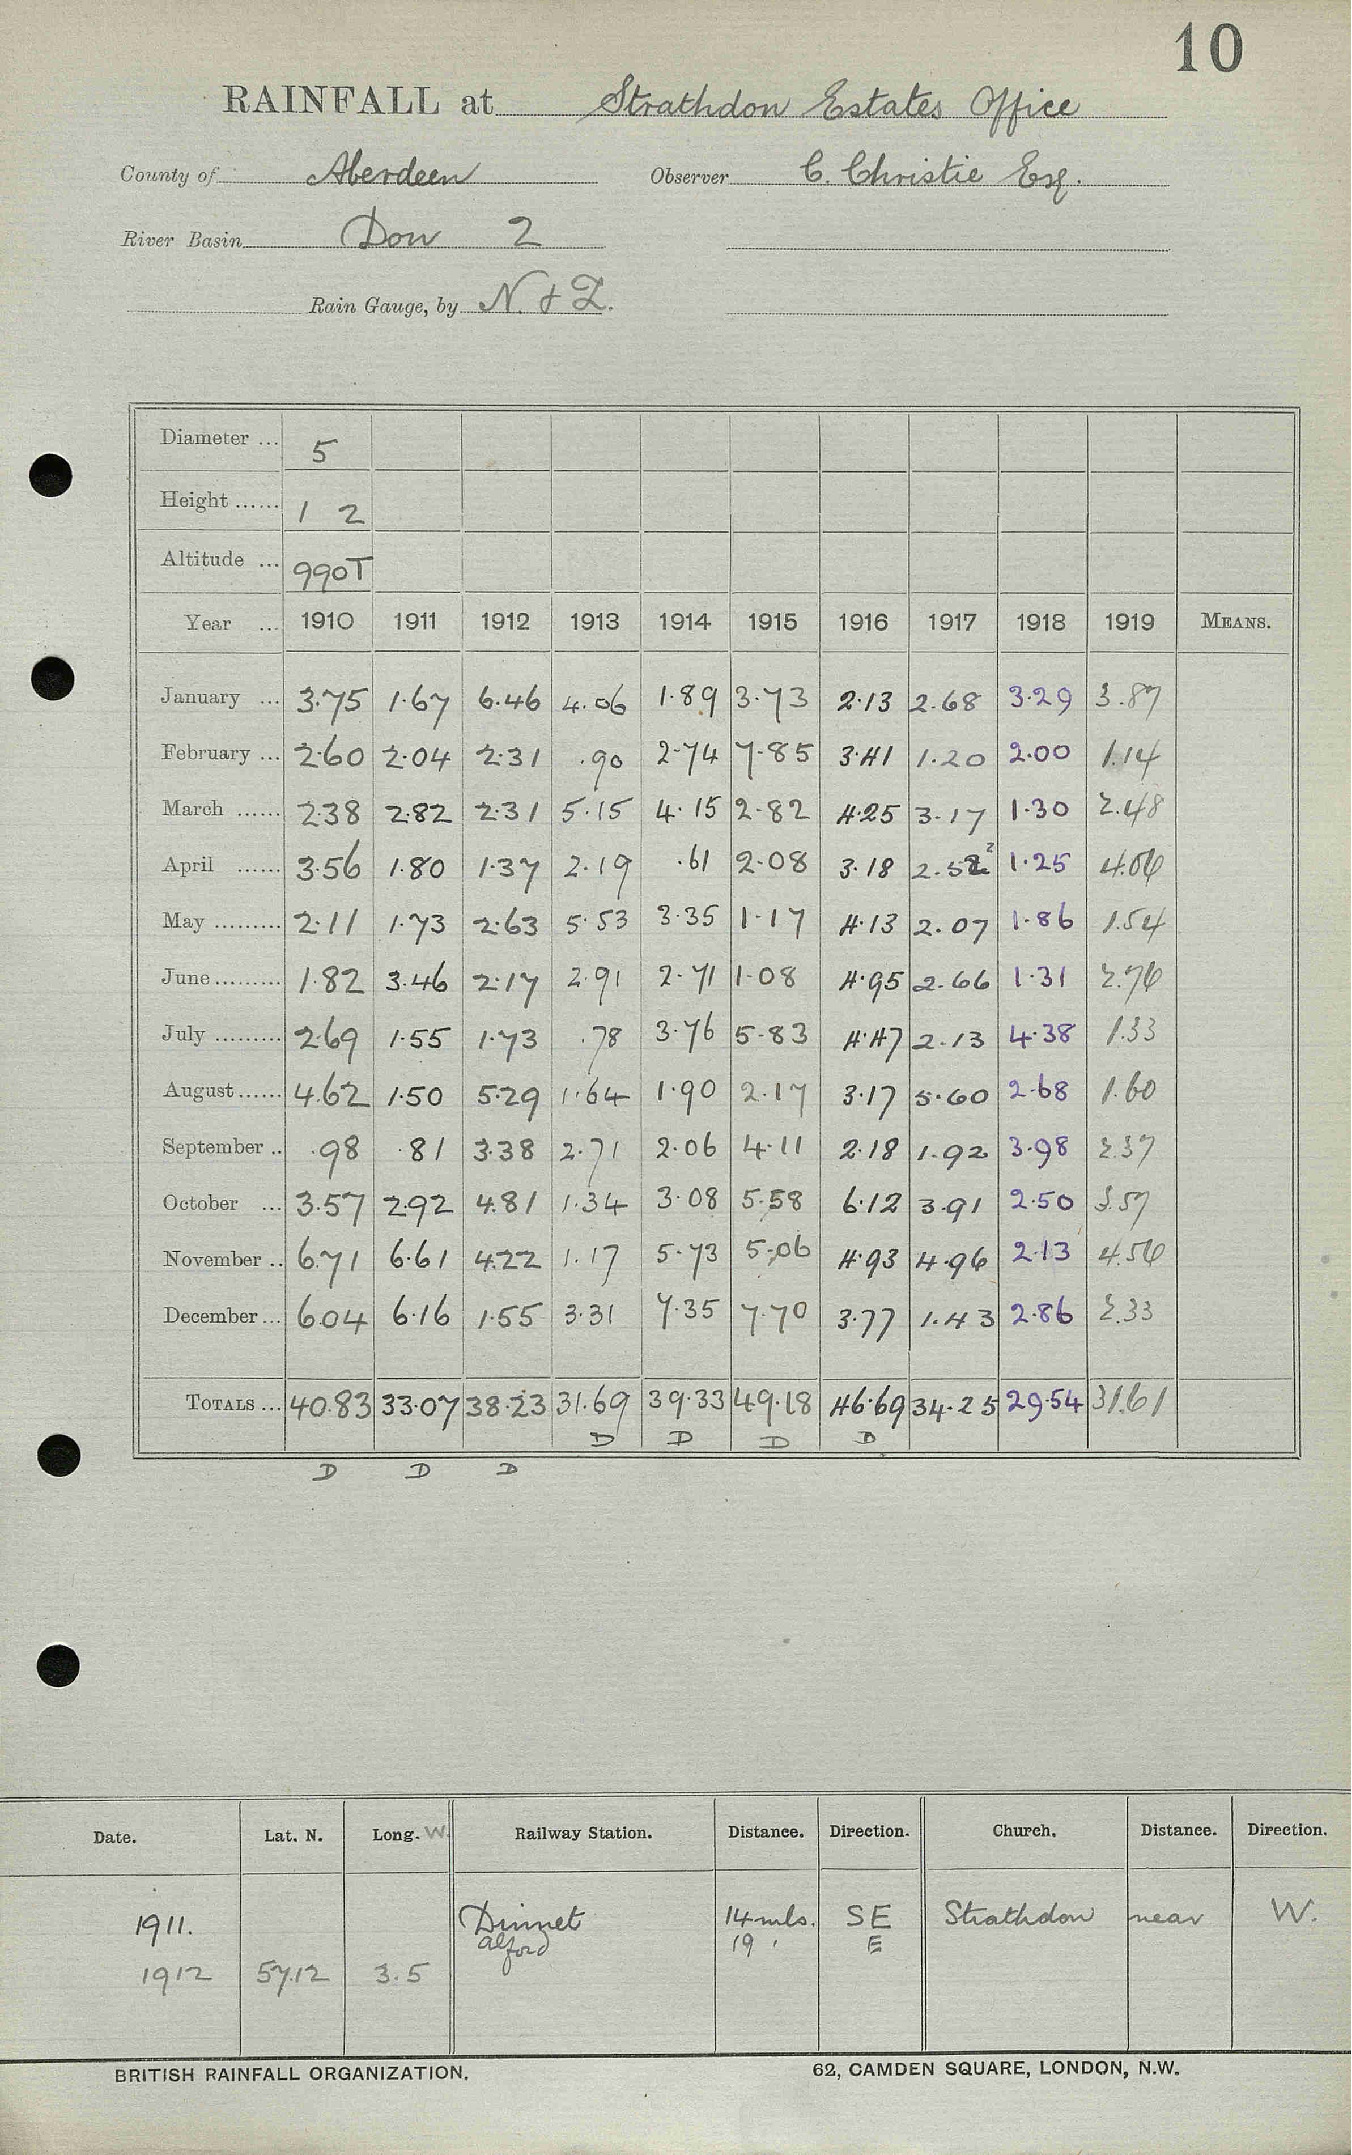 10
RAINFALL at Strathdon Estates Office
County of Aberdeen Observer C. Christie Esq.
River Basin Don 2
Rain Gauge, by N. & Z.
Diameter ... 5
Height ...... 1 2
Altitude ... 990T
Year ... 1910 1911 1912 1913 1914 1915 1916 1917 1918 1919 MEANS.
January ... 3.75 1.67 6.46 4.06 1.89 3.73 2.13 2.68 3.29 3.87
February ... 2.60 2.04 2.31 .90 2.74 7.85 3.41 1.20 2.00 1.14
March ...... 2.38 2.82 2.31 5.15 4.15 2.82 4.25 3.17 1.30 2.48
April ...... 3.56 1.80 1.37 2.19 .61 2.08 3.18 2.52 2 1.25 4.06
May ......... 2.11 1.73 2.63 5.53 3.35 1.17 4.13 2.07 1.86 1.54
June ......... 1.82 3.46 2.17 2.91 2.71 1.08 4.95 2.66 1.31 2.76
July ......... 2.69 1.55 1.73 .78 3.76 5.83 4.47 2.13 4.38 1.33
August ...... 4.62 1.50 5.29 1.64 1.90 2.17 3.17 5.60 2.68 1.60
September .. .98 .81 3.38 2.71 2.06 4.11 2.18 1.92 3.98 2.37
October ... 3.57 2.92 4.81 1.34 3.08 5.58 6.12 3.91 2.50 3.57
November .. 6.71 6.61 4.22 1.17 5.73 5.06 4.93 4.96 2.13 4.56
December ... 6.04 6.16 1.55 3.31 7.35 7.70 3.77 1.43 2.86 2.33
TOTALS ... 40.83 33.07 38.23 31.69 39.33 49.18 46.69 34.25 29.54 31.61
D D D D
D D D
Date. Lat. N. Long. W. Railway Station. Distance. Direction. Church. Distance. Direction.
1911. Dinnet 14 mls. SE Strathdon near W.
Alford 19 ' E
1912 57.12 3.5
BRITISH RAINFALL ORGANIZATION. 62, CAMDEN SQUARE, LONDON, N.W.